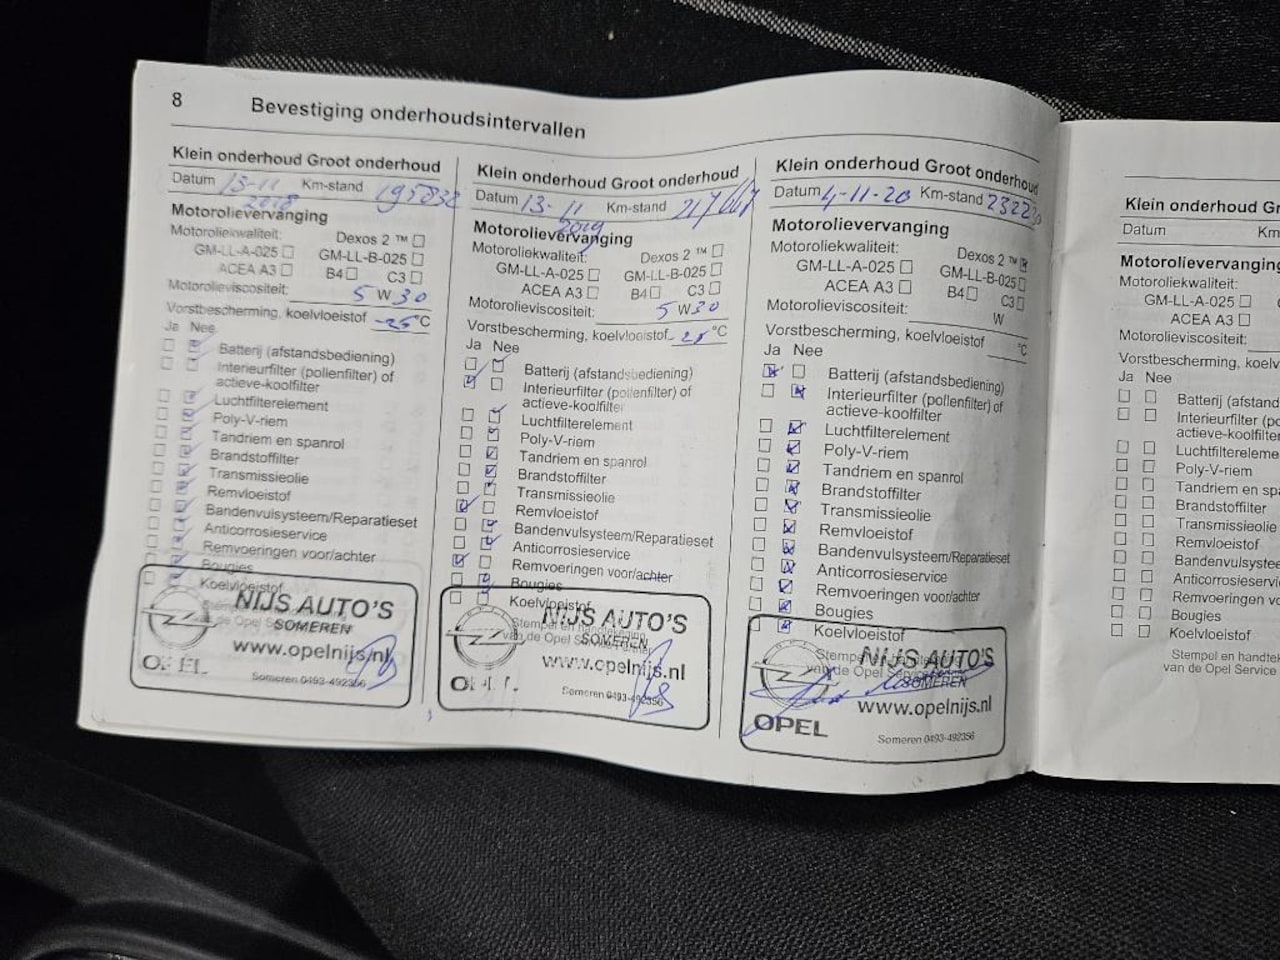 8 Bevestiging onderhoudsintervallen
Klein onderhoud Groot onderhoud
Datum 13-11 2018 Km-stand 195832
Motorolievervanging
Motoroliekwaliteit: Dexos 2 ™
GM-LL-A-025 GM-LL-B-025
ACEA A3 B4 C3
Motorolieviscositeit: 5 W 30
Vorstbescherming, koelvloeistof -25 °C
Ja Nee
Batterij (afstandsbediening)
Interieurfilter (pollenfilter) of
actieve-koolfilter
Luchtfilterelement
Poly-V-riem
Tandriem en spanrol
Brandstoffilter
Transmissieolie
Remvloeistof
Bandenvulsysteem/Reparatieset
Anticorrosieservice
Remvoeringen voor/achter
Bougies
Koelvloeistof
NIJS AUTO'S
SOMEREN
www.opelnijs.nl
OPEL
Someren 0493-492356
Klein onderhoud Groot onderhoud
Datum 13-11 2019 Km-stand 217667
Motorolievervanging
Motoroliekwaliteit: Dexos 2 ™
GM-LL-A-025 GM-LL-B-025
ACEA A3 B4 C3
Motorolieviscositeit: 5 W 30
Vorstbescherming, koelvloeistof -25 °C
Ja Nee
Batterij (afstandsbediening)
Interieurfilter (pollenfilter) of
actieve-koolfilter
Luchtfilterelement
Poly-V-riem
Tandriem en spanrol
Brandstoffilter
Transmissieolie
Remvloeistof
Bandenvulsysteem/Reparatieset
Anticorrosieservice
Remvoeringen voor/achter
Bougies
Koelvloeistof
Stempel en handtekening
van de Opel Service Partner
NIJS AUTO'S
SOMEREN
www.opelnijs.nl
Someren 0493-492356
Klein onderhoud Groot onderhoud
Datum 4-11-20 Km-stand
Motorolievervanging
Motoroliekwaliteit: Dexos 2 ™
GM-LL-A-025 GM-LL-B-025
ACEA A3 B4 C3
Motorolieviscositeit: W
Vorstbescherming, koelvloeistof °C
Ja Nee
Batterij (afstandsbediening)
Interieurfilter (pollenfilter) of
actieve-koolfilter
Luchtfilterelement
Poly-V-riem
Tandriem en spanrol
Brandstoffilter
Transmissieolie
Remvloeistof
Bandenvulsysteem/Reparatieset
Anticorrosieservice
Remvoeringen voor/achter
Bougies
Koelvloeistof
NIJS AUTO'S
SOMEREN
www.opelnijs.nl
OPEL
Someren 0493-492356
Klein onderhoud Gr
Datum Km
Motorolievervanging
Motoroliekwaliteit:
GM-LL-A-025
ACEA A3
Motorolieviscositeit:
Vorstbescherming, koelv
Ja Nee
Batterij (afstand
Interieurfilter (po
actieve-koolfilte
Luchtfilterelem
Poly-V-riem
Tandriem en spa
Brandstoffilter
Transmissieolie
Remvloeistof
Bandenvulsyste
Anticorrosieserv
Remvoeringen vo
Bougies
Koelvloeistof
Stempel en handtek
van de Opel Service